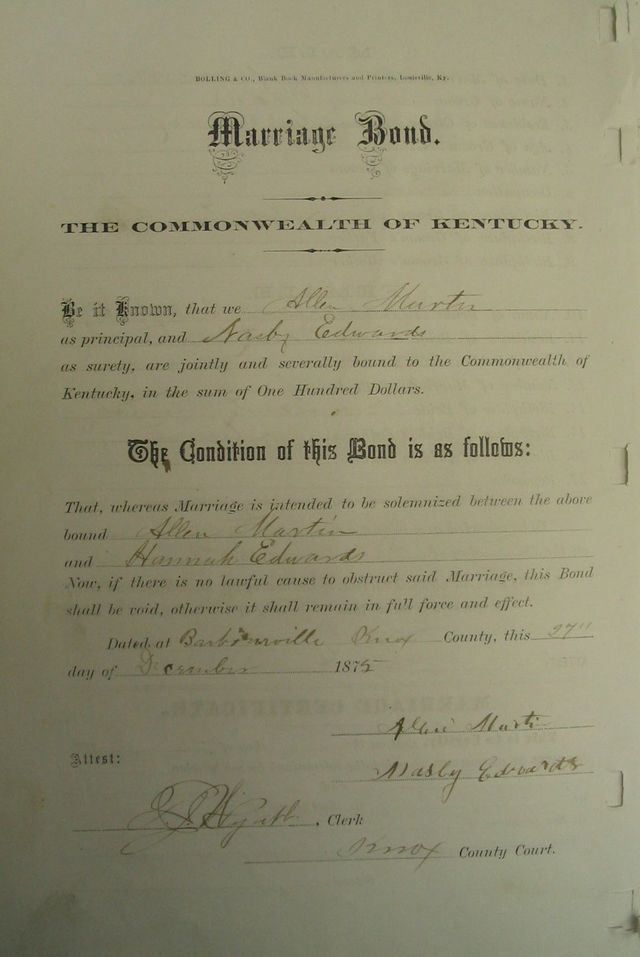 BOLLING & CO., Blank Book Manufacturers and Printers, Louisville, Ky.
Marriage Bond.
THE COMMONWEALTH OF KENTUCKY.
Be it Known, that we Allen Martin
as principal, and Nasby Edwards
as surety, are jointly and severally bound to the Commonwealth of
Kentucky, in the sum of One Hundred Dollars.
The Condition of this Bond is as follows:
That, whereas Marriage is intended to be solemnized between the above
bound Allen Martin
and Hannah Edwards
Now, if there is no lawful cause to obstruct said Marriage, this Bond
shall be void, otherwise it shall remain in full force and effect.
Dated at Barbourville Knox County, this 27"
day of December 1875
Allen Martin
Attest:
Nasby Edwards
Clerk
Knox County Court.